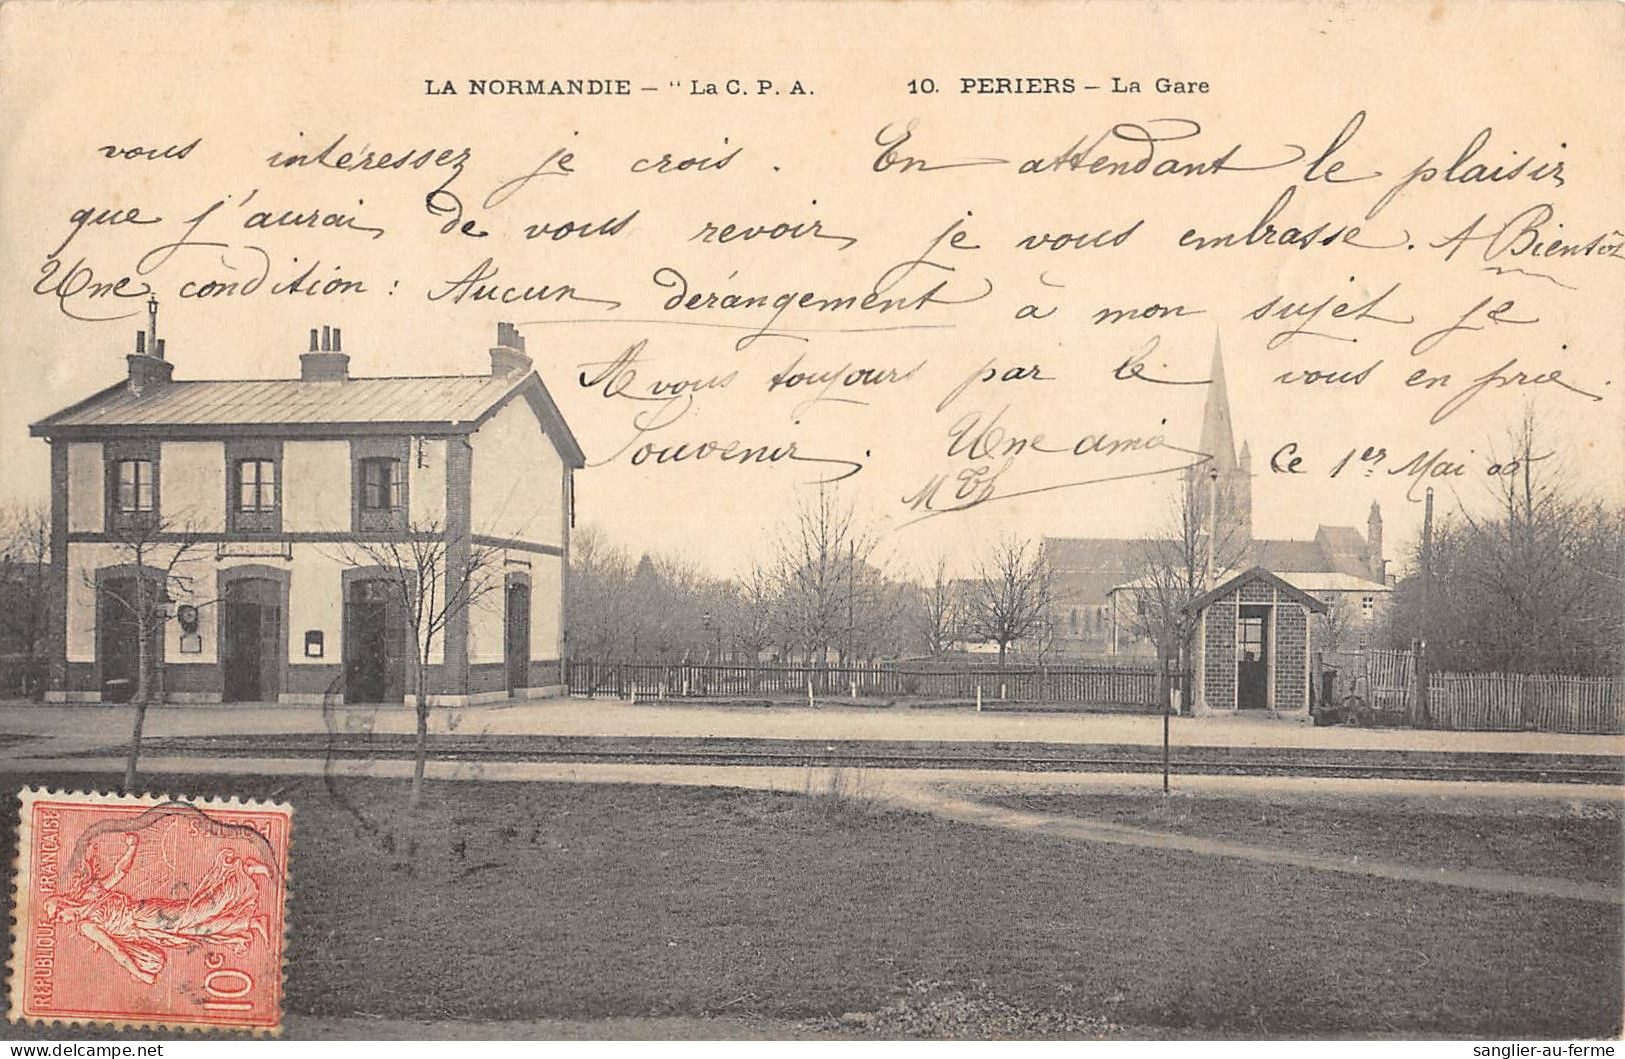 LA NORMANDIE – " La C. P. A. 10. PERIERS – La Gare
vous intéressez je crois. En attendant le plaisir
que j'aurai de vous revoir je vous embrasse. A Bientôt
Une condition : Aucun dérangement à mon sujet je
vous toujours par le vous en prie.
Souvenir. Une amie Ce 1er Mai
M Th
POSTES
REPUBLIQUE FRANÇAISE
10c
sanglier-au-ferme